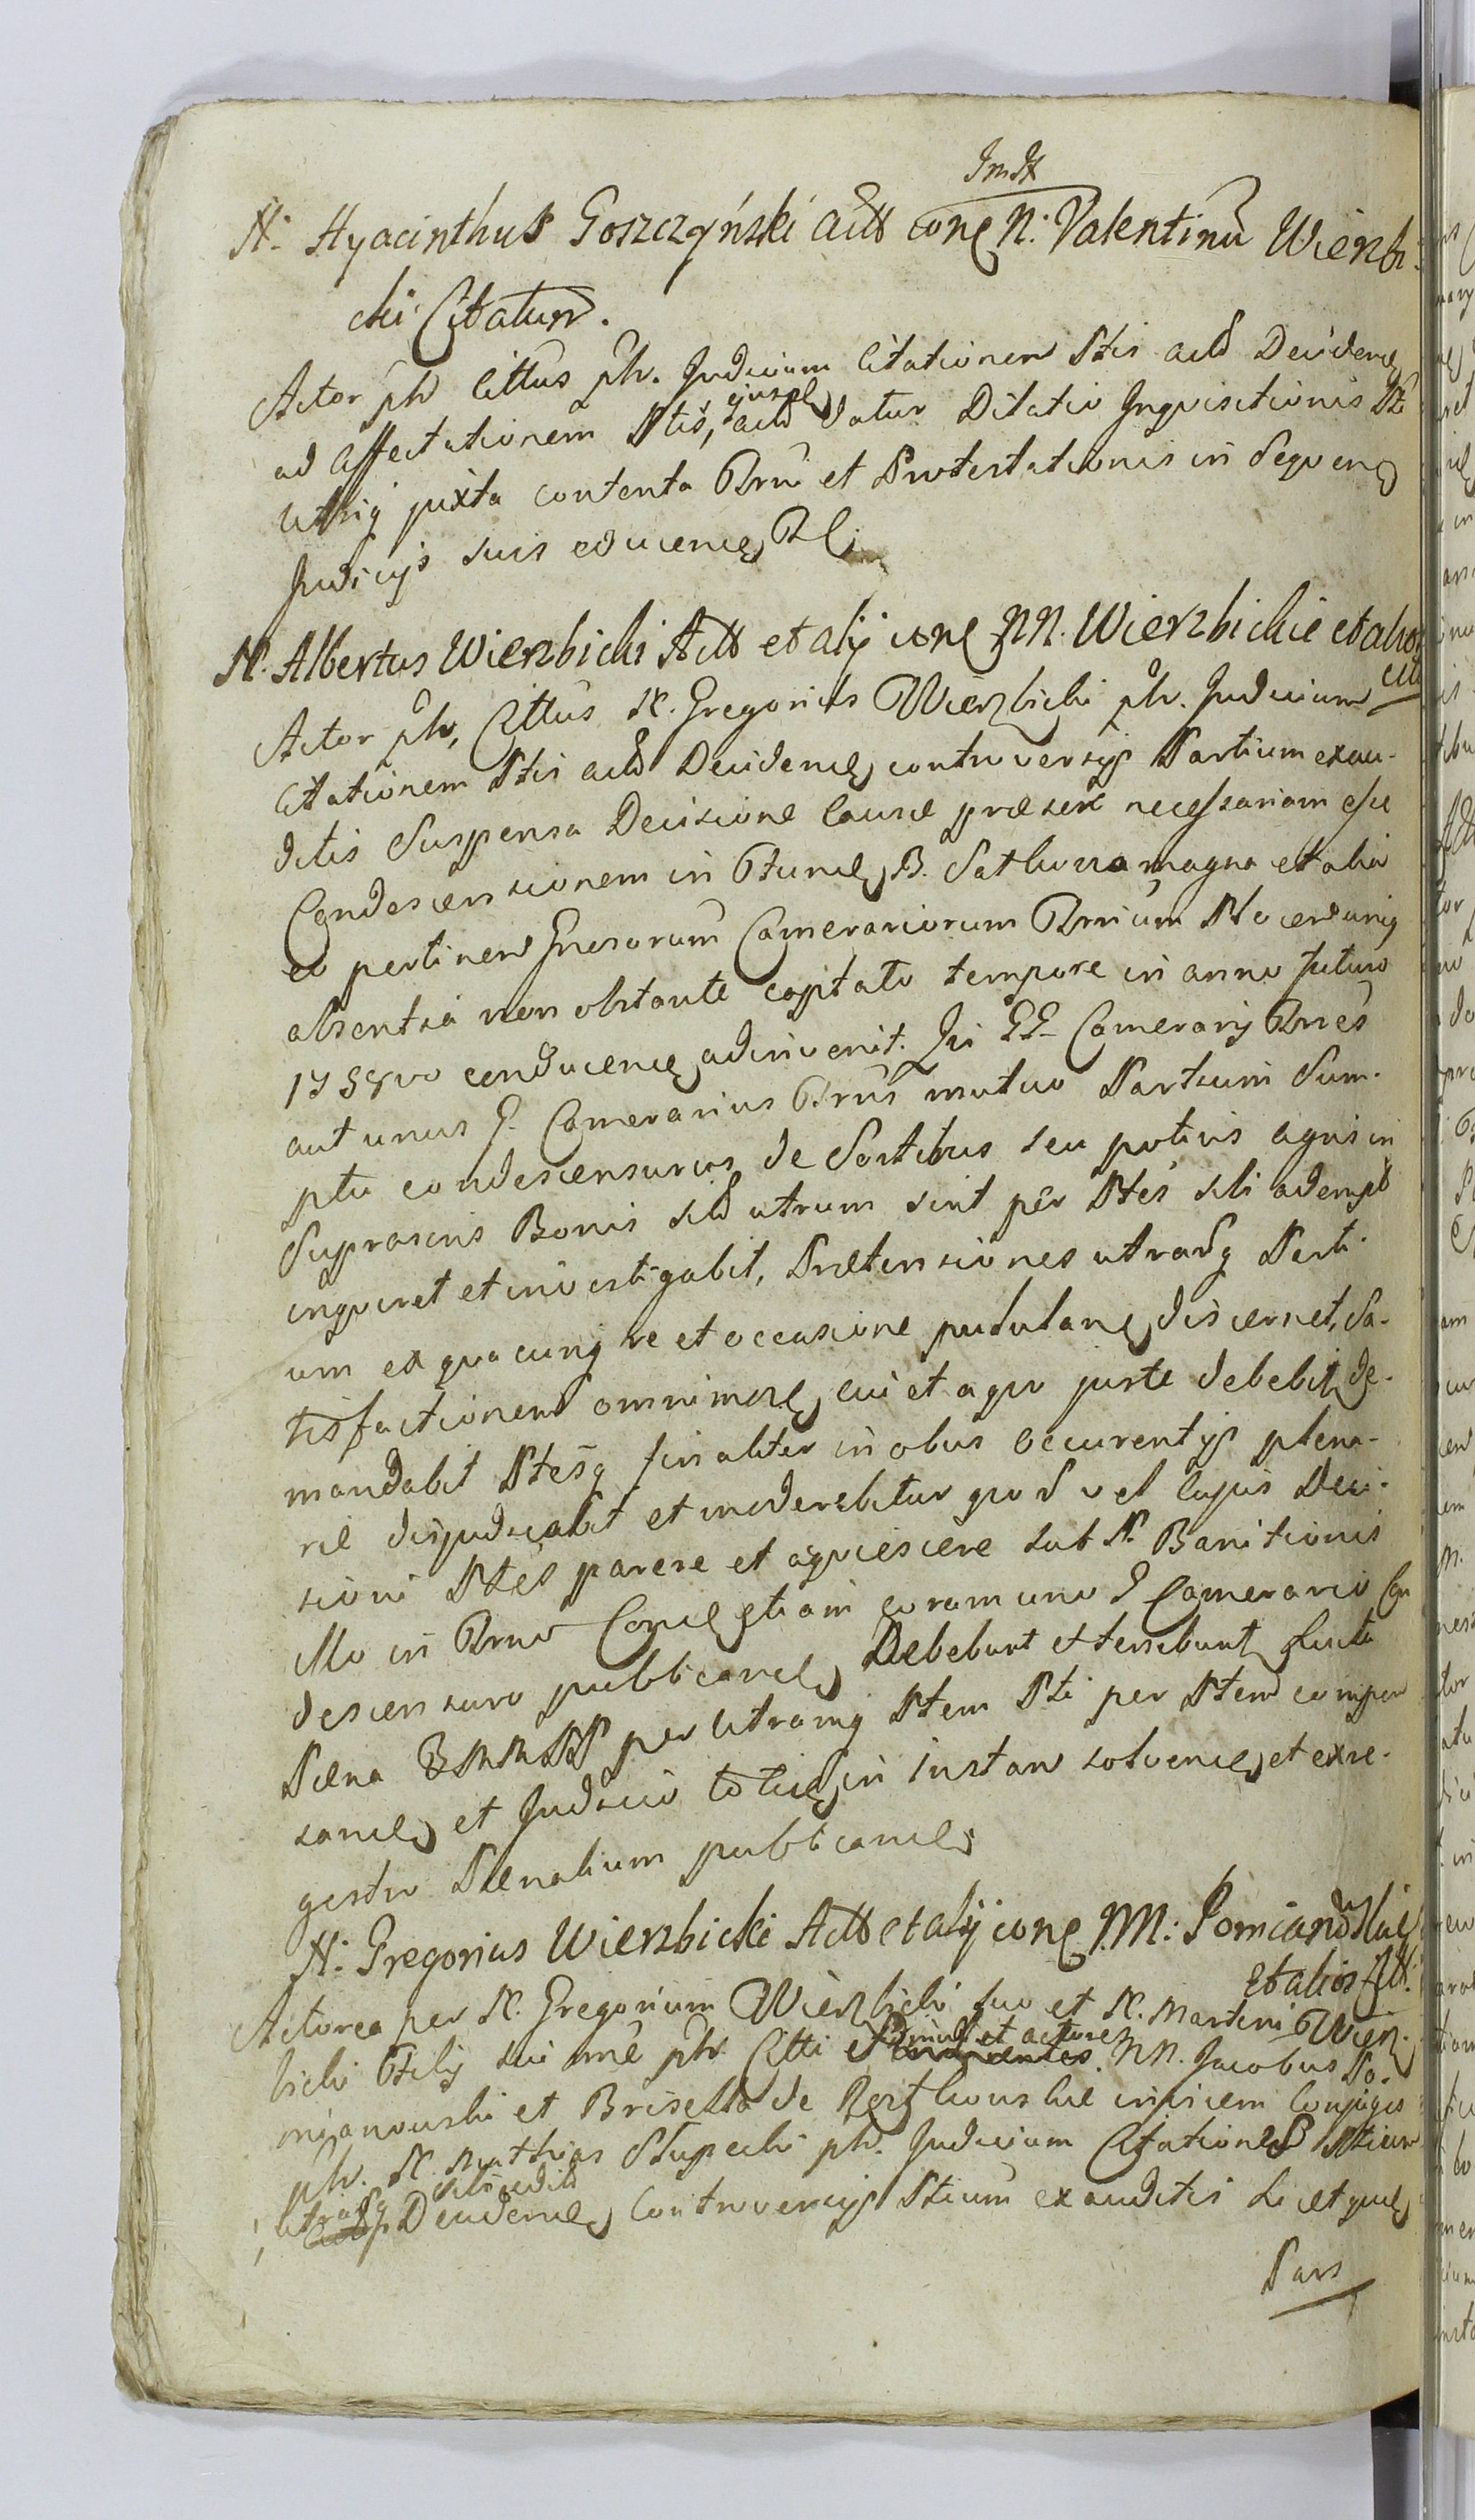 N. Hyacinthus Goszczyński Actt conc N. Valentinū Wierzbi-
cki Citatum.
Actor ph Cittus ph. Judicium Citationem Ptis actd Decidend
ad affectationem Ptis, ejusd actd datur Dilatio Inqvisitionis Pti
utriq juxta contenta Prni et Protestationis in seqven
Judicijs suis educend
N. Albertus Wierzbicki Actt et alij conc NN. Wierzbickie et alios
citt
Actor ph, Cittus N. Gregorius Wierzbicki ph. Judicium
Citationem Ptis actd Decidend controversijs Partium exau-
ditis suspensa Decisione Causæ præsen necessariam esse
Condescensionem in Fund B. Sathurra magna et alia
eo pertinen Gnesorum Camerariorum Prnium Nto
absentia non obstante captato tempore in anno futuro
conducend adinvenit. Qui GG Camerarij Prnes
aut unus G. Camerarius Prnis mutuo Partium sum-
ptu condescensuros de Sortibus seu potius agris in
suprascris Bonis utrum sint per Ptes sibi adempt
inqviret et investigabit, Prætensiones utrasq Parti-
um ex qvacunq re et occasione pullulan discernet, Sa-
tisfactionem omnimod cui et a qvo juste debebit de-
mandabit Ptesq finaliter in obus occurentijs plena-
rie dijudicabit et moderabitur qvod vel cujus Deci-
sioni Ptes parere et aqviescere sub Banitionis
illo in Prno etiam coram uno G Camerario Con
descensuro publicand Debebunt et tenebunt
Pæna per utramq Ptem Pti per Ptem compen
sand et Judicio totid in instan solvend et ex re-
gestro Pænalium publicand
N. Gregorius Wierzbicki Actt et alij conc NN: Pomianowskie
et alios Citt.
Actorea per N. Gregorium Wierzbicki suo et N. Martini Wierz-
bicki Filij sui nne ph. Citti NN. Jacobus Po-
mianowski et Brisetta de invicem Conjuges
ph. N. Mathias Slupecki ph. Judicium Citationes Ptium
utrasq Decidend Controversijs Ptium exauditis Licet qvid
Pars